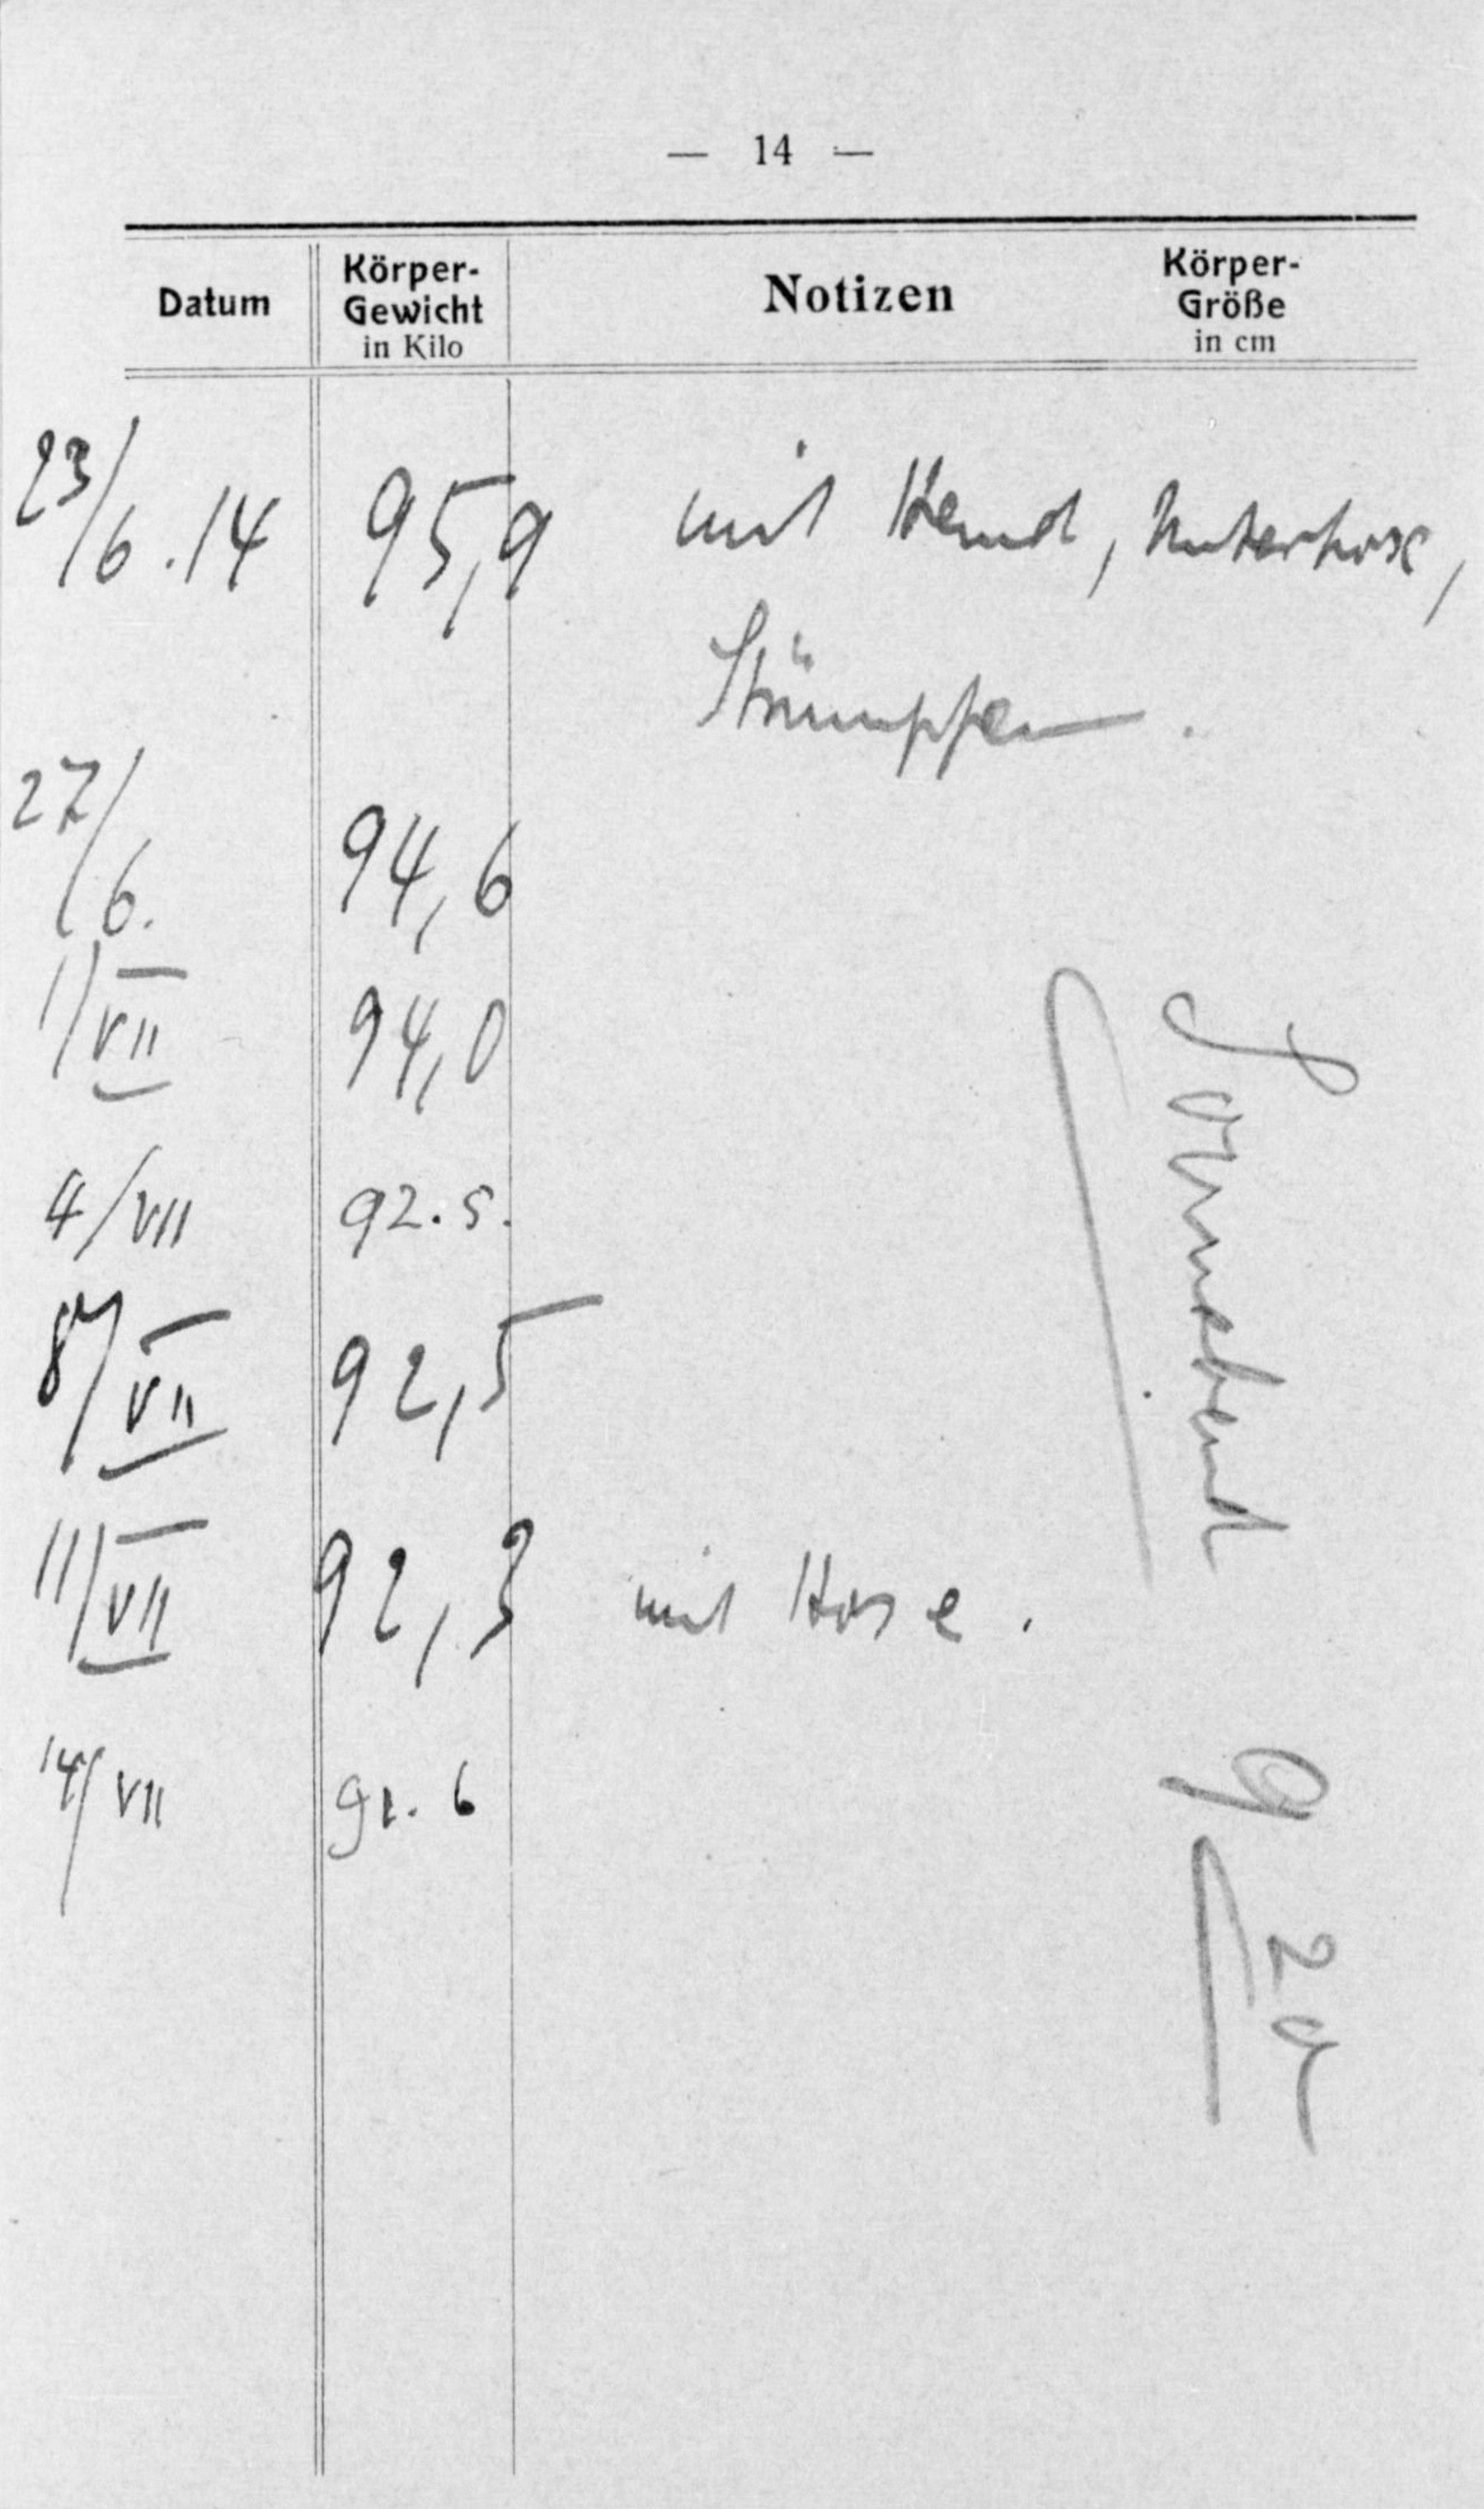 — 14 —
Datum Körper-Gewicht in Kilo Notizen Körper-Größe in cm
23/6.14 95,9 mit Hemd, Unterhose,
Strümpfen.
27/6. 94,6
1/VII 94,0
4/VII 92.5.
8/VII 92,5
11/VII 92,3 mit Hose.
14/VII 91.6
Sonnabend
9